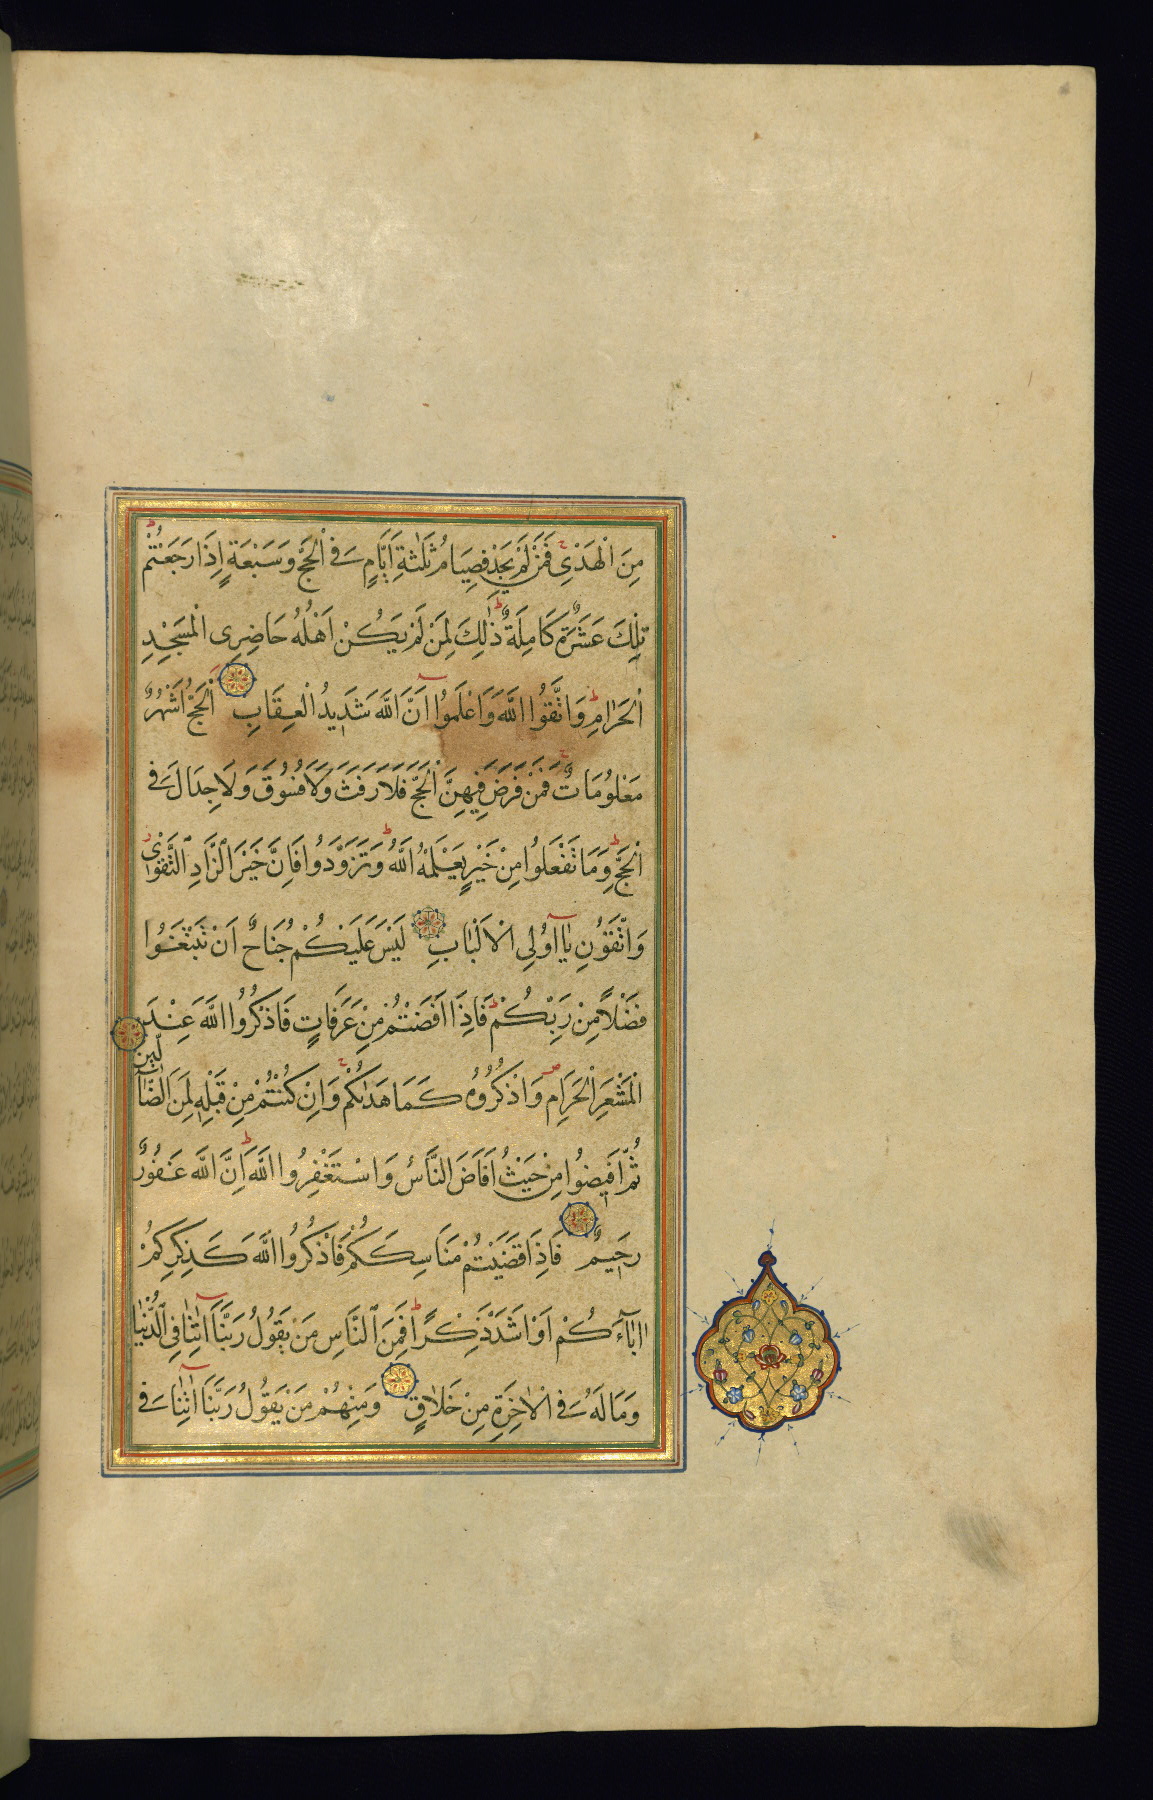 مِنَ الْهَدْيِ فَمَنْ لَمْ يَجِدْ فَصِيَامُ ثَلٰثَةِ اَيَّامٍ فِي الْحَجِّ وَسَبْعَةٍ اِذَا رَجَعْتُمْ
تِلْكَ عَشَرَةٌ كَامِلَةٌ ذٰلِكَ لِمَنْ لَمْ يَكُنْ اَهْلُهُ حَاضِرِي الْمَسْجِدِ
الْحَرَامِ وَاتَّقُوا اللّٰهَ وَاعْلَمُوا اَنَّ اللّٰهَ شَدِيدُ الْعِقَابِ اَلْحَجُّ اَشْهُرٌ
مَعْلُومَاتٌ فَمَنْ فَرَضَ فِيهِنَّ الْحَجَّ فَلَا رَفَثَ وَلَا فُسُوقَ وَلَا جِدَالَ فِي
الْحَجِّ وَمَا تَفْعَلُوا مِنْ خَيْرٍ يَعْلَمْهُ اللّٰهُ وَتَزَوَّدُوا فَاِنَّ خَيْرَ الزَّادِ التَّقْوٰى
وَاتَّقُونِ يَا اُولِي الْاَلْبَابِ لَيْسَ عَلَيْكُمْ جُنَاحٌ اَنْ تَبْتَغُوا
فَضْلًا مِنْ رَبِّكُمْ فَاِذَا اَفَضْتُمْ مِنْ عَرَفَاتٍ فَاذْكُرُوا اللّٰهَ عِنْدَ
الْمَشْعَرِ الْحَرَامِ وَاذْكُرُوهُ كَمَا هَدٰىكُمْ وَاِنْ كُنْتُمْ مِنْ قَبْلِهِ لَمِنَ الضَّآلِّينَ
ثُمَّ اَفِيضُوا مِنْ حَيْثُ اَفَاضَ النَّاسُ وَاسْتَغْفِرُوا اللّٰهَ اِنَّ اللّٰهَ غَفُورٌ
رَحِيمٌ فَاِذَا قَضَيْتُمْ مَنَاسِكَكُمْ فَاذْكُرُوا اللّٰهَ كَذِكْرِكُمْ
اٰبَآءَكُمْ اَوْ اَشَدَّ ذِكْرًا فَمِنَ النَّاسِ مَنْ يَقُولُ رَبَّنَا اٰتِنَا فِي الدُّنْيَا
وَمَا لَهُ فِي الْاٰخِرَةِ مِنْ خَلَاقٍ وَمِنْهُمْ مَنْ يَقُولُ رَبَّنَا اٰتِنَا فِي